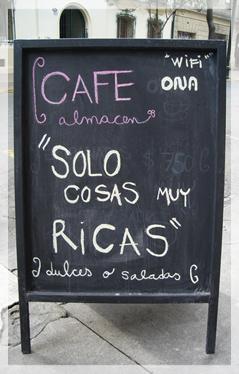 "WiFi"
CAFE ONA
almacen
"SOLO
COSAS MUY
RICAS"
dulces o saladas